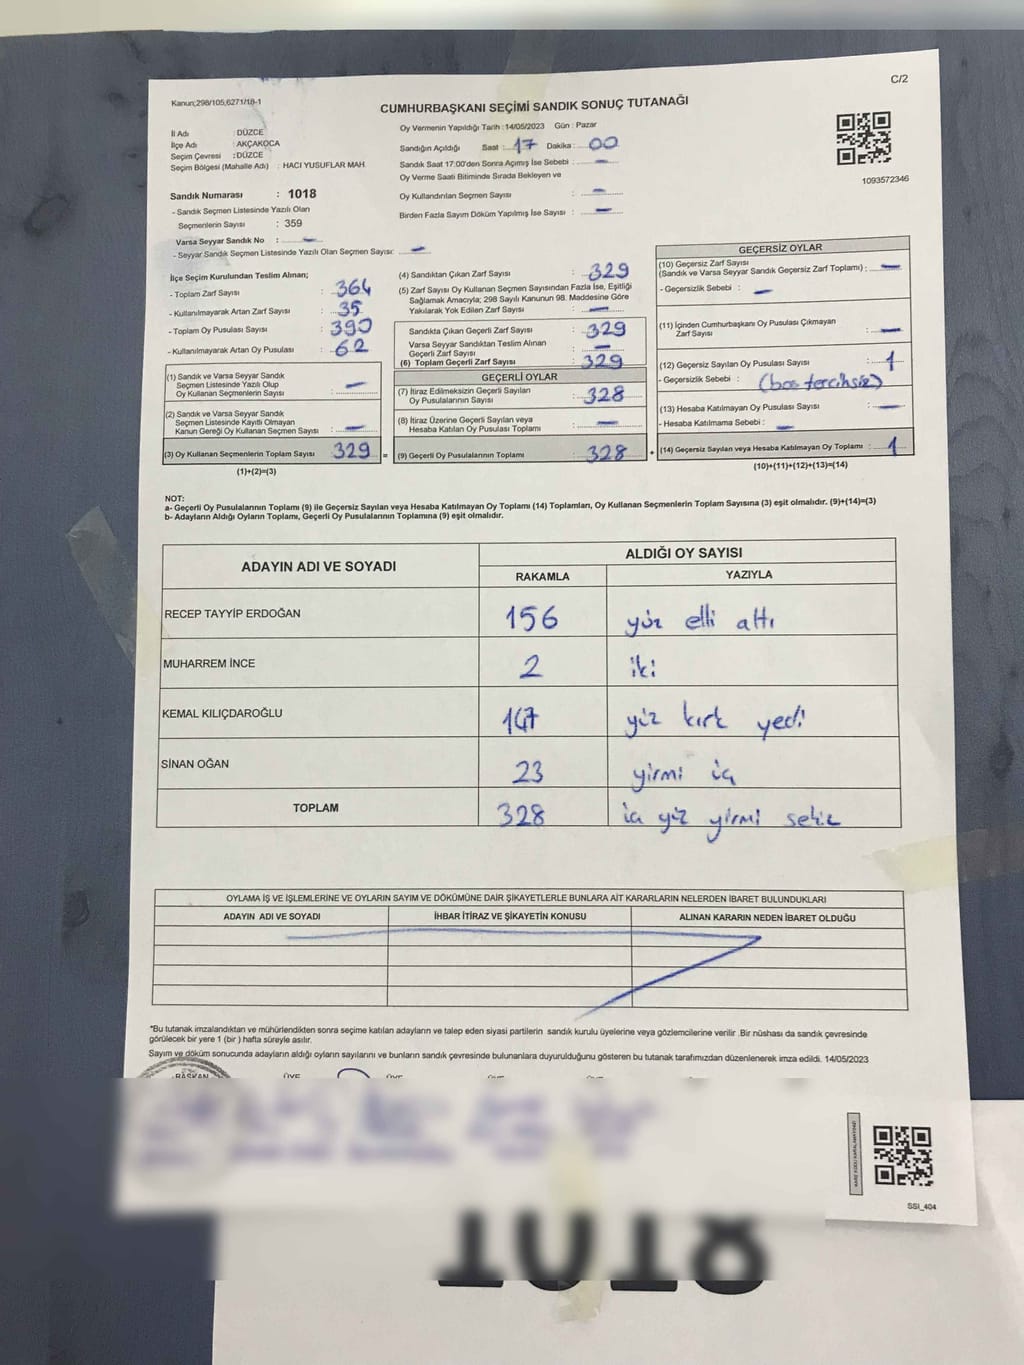 C/2
Kanun;298/105,6271/18-1
CUMHURBAŞKANI SEÇİMİ SANDIK SONUÇ TUTANAĞI
İl Adı : DÜZCE
İlçe Adı : AKÇAKOCA
Seçim Çevresi : DÜZCE
Seçim Bölgesi (Mahalle Adı) : HACI YUSUFLAR MAH.
Sandık Numarası : 1018
- Sandık Seçmen Listesinde Yazılı Olan
Seçmenlerin Sayısı : 359
Varsa Seyyar Sandık No : —
- Seyyar Sandık Seçmen Listesinde Yazılı Olan Seçmen Sayısı: —
Oy Vermenin Yapıldığı Tarih :14/05/2023 Gün : Pazar
Sandığın Açıldığı Saat : 17 Dakika : 00
Sandık Saat 17:00'den Sonra Açımış İse Sebebi : —
Oy Verme Saati Bitiminde Sırada Bekleyen ve
Oy Kullandırılan Seçmen Sayısı : —
Birden Fazla Sayım Döküm Yapılmış İse Sayısı : —
1093572346
İlçe Seçim Kurulundan Teslim Alınan;
- Toplam Zarf Sayısı : 364
- Kullanılmayarak Artan Zarf Sayısı : 35
- Toplam Oy Pusulası Sayısı : 390
- Kullanılmayarak Artan Oy Pusulası : 62
(1) Sandık ve Varsa Seyyar Sandık
Seçmen Listesinde Yazılı Olup
Oy Kullanan Seçmenlerin Sayısı : —
(2) Sandık ve Varsa Seyyar Sandık
Seçmen Listesinde Kayıtlı Olmayan
Kanun Gereği Oy Kullanan Seçmen Sayısı : —
(3) Oy Kullanan Seçmenlerin Toplam Sayısı 329 =
(1)+(2)=(3)
(4) Sandıktan Çıkan Zarf Sayısı : 329
(5) Zarf Sayısı Oy Kullanan Seçmen Sayısından Fazla İse, Eşitliği
Sağlamak Amacıyla; 298 Sayılı Kanunun 98. Maddesine Göre
Yakılarak Yok Edilen Zarf Sayısı : —
Sandıkta Çıkan Geçerli Zarf Sayısı : 329
Varsa Seyyar Sandıktan Teslim Alınan
Geçerli Zarf Sayısı : —
(6) Toplam Geçerli Zarf Sayısı : 329
GEÇERLİ OYLAR
(7) İtiraz Edilmeksizin Geçerli Sayılan
Oy Pusulalarının Sayısı : 328
(8) İtiraz Üzerine Geçerli Sayılan veya
Hesaba Katılan Oy Pusulası Toplamı : —
(9) Geçerli Oy Pusulalarının Toplamı : 328 +
GEÇERSİZ OYLAR
(10) Geçersiz Zarf Sayısı
(Sandık ve Varsa Seyyar Sandık Geçersiz Zarf Toplamı) : —
- Geçersizlik Sebebi : —
(11) İçinden Cumhurbaşkanı Oy Pusulası Çıkmayan
Zarf Sayısı : —
(12) Geçersiz Sayılan Oy Pusulası Sayısı : 1
- Geçersizlik Sebebi : (bos tercihsiz)
(13) Hesaba Katılmayan Oy Pusulası Sayısı : —
- Hesaba Katılmama Sebebi : —
(14) Geçersiz Sayılan veya Hesaba Katılmayan Oy Toplamı : 1
(10)+(11)+(12)+(13)=(14)
NOT:
a- Geçerli Oy Pusulalarının Toplamı (9) ile Geçersiz Sayılan veya Hesaba Katılmayan Oy Toplamı (14) Toplamları, Oy Kullanan Seçmenlerin Toplam Sayısına (3) eşit olmalıdır. (9)+(14)=(3)
b- Adayların Aldığı Oyların Toplamı, Geçerli Oy Pusulalarının Toplamına (9) eşit olmalıdır.
ADAYIN ADI VE SOYADI ALDIĞI OY SAYISI
RAKAMLA YAZIYLA
RECEP TAYYİP ERDOĞAN 156 yüz elli altı
MUHARREM İNCE 2 iki
KEMAL KILIÇDAROĞLU 147 yüz kırk yedi
SİNAN OĞAN 23 yirmi üç
TOPLAM 328 üç yüz yirmi sekiz
OYLAMA İŞ VE İŞLEMLERİNE VE OYLARIN SAYIM VE DÖKÜMÜNE DAİR ŞİKAYETLERLE BUNLARA AİT KARARLARIN NELERDEN İBARET BULUNDUKLARI
ADAYIN ADI VE SOYADI İHBAR İTİRAZ VE ŞİKAYETİN KONUSU ALINAN KARARIN NEDEN İBARET OLDUĞU
*Bu tutanak imzalandıktan ve mühürlendikten sonra seçime katılan adayların ve talep eden siyasi partilerin sandık kurulu üyelerine veya gözlemcilerine verilir .Bir nüshası da sandık çevresinde
görülecek bir yere 1 (bir ) hafta süreyle asılır.
Sayım ve döküm sonucunda adayların aldığı oyların sayılarını ve bunların sandık çevresinde bulunanlara duyurulduğunu gösteren bu tutanak tarafımızdan düzenlenerek imza edildi. 14/05/2023
BAŞKAN ÜYE ÜYE ÜYE ÜYE
SSI_404
1018